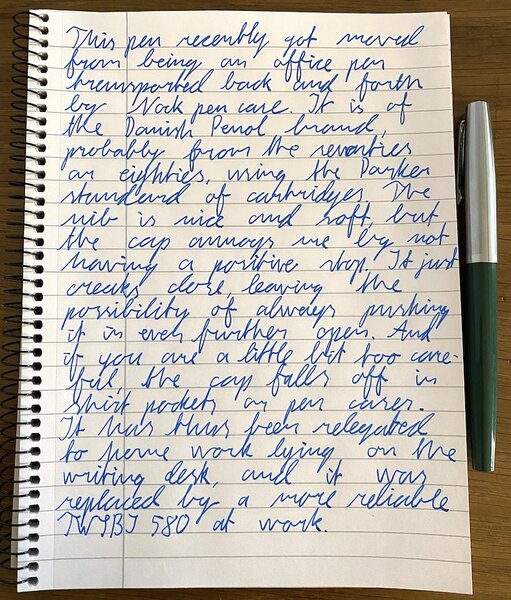 This pen recently got moved
from being an office pen
transported back and forth
by Nock pen case. It is of
the Danish Penol brand,
probably from the seventies
or eighties, using the Parker
standard of cartridges. The
nib is nice and soft, but
the cap annoys me by not
having a positive stop. It just
creaks close, leaving the
possibility of always pushing
it in even further open. And
if you are a little bit too care-
ful, the cap falls off in
shirt pockets or pen cases.
It has thus been relegated
to home work lying on the
writing desk, and it was
replaced by a more reliable
TWSBI 580 at work.